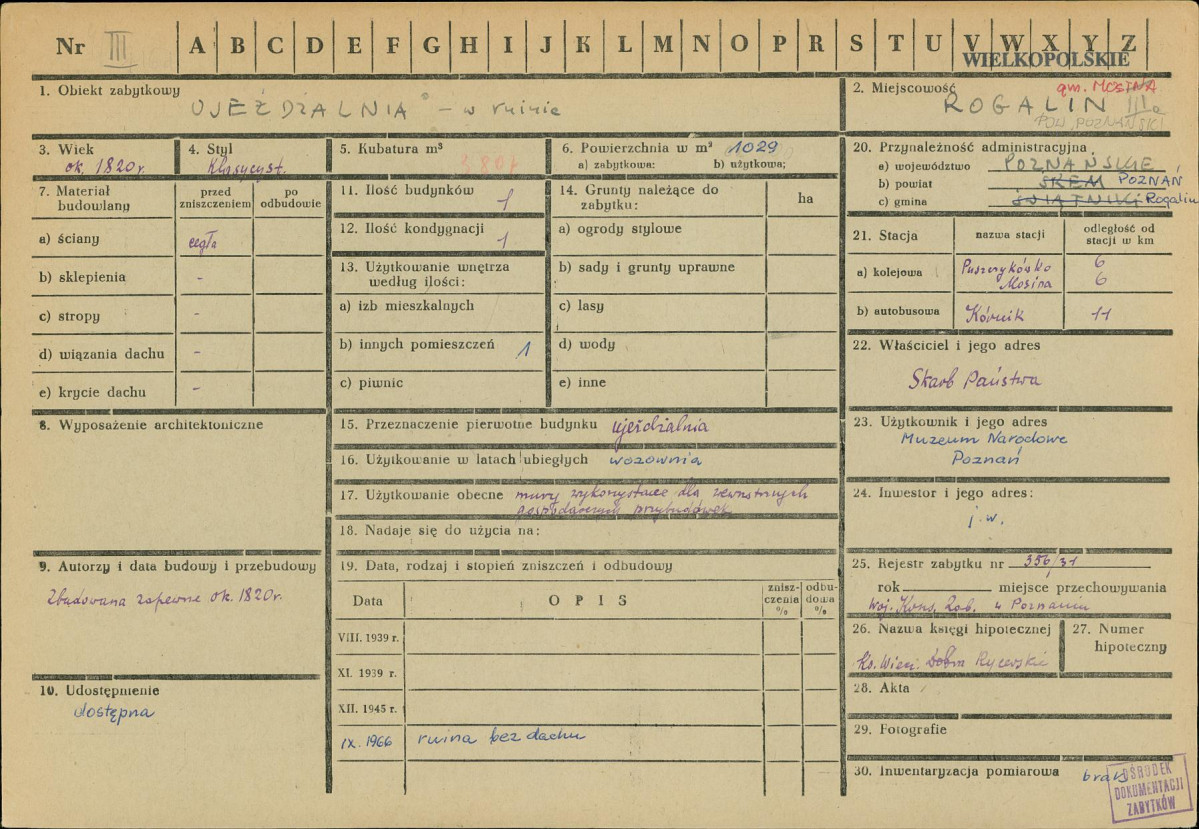 Nr III A B C D E F G H I J K L M N O P R S T U V W X Y Z
WIELKOPOLSKIE
1. Obiekt zabytkowy
"UJEŻDŻALNIA" – w ruinie
2. Miejscowość
gm. MOSINA
ROGALIN IIIa
POW. POZNAŃSKI
3. Wiek
ok. 1820 r.
4. Styl
Klasycyst.
5. Kubatura m³
6. Powierzchnia w m² 1029
a) zabytkowa: b) użytkowa:
7. Materiał budowlany
przed zniszczeniem
po odbudowie
a) ściany cegła
b) sklepienia -
c) stropy -
d) wiązania dachu -
e) krycie dachu -
8. Wyposażenie architektoniczne
9. Autorzy i data budowy i przebudowy
Zbudowana zapewne ok. 1820 r.
10. Udostępnienie
dostępna
11. Ilość budynków 1
12. Ilość kondygnacji 1
13. Użytkowanie wnętrza
według ilości:
a) izb mieszkalnych
b) innych pomieszczeń 1
c) piwnic
14. Grunty należące do
zabytku:
ha
a) ogrody stylowe
b) sady i grunty uprawne
c) lasy
d) wody
e) inne
15. Przeznaczenie pierwotne budynku ujeżdżalnia
16. Użytkowanie w latach ubiegłych wozownia
17. Użytkowanie obecne mury wykorzystane dla zewnętrznych
gospodarczych przybudówek
18. Nadaje się do użycia na:
19. Data, rodzaj i stopień zniszczeń i odbudowy
Data
OPIS
znisz-
czenia
%
odbu-
dowa
%
VIII. 1939 r.
XI. 1939 r.
XII. 1945 r.
IX. 1966 ruina bez dachu
20. Przynależność administracyjna
a) województwo POZNAŃSKIE
b) powiat ŚREM POZNAŃ
c) gmina ŚWIĄTNIKI Rogalin
21. Stacja
nazwa stacji
odległość od
stacji w km
a) kolejowa Puszczykówko 6
Mosina 6
b) autobusowa Kórnik 11
22. Właściciel i jego adres
Skarb Państwa
23. Użytkownik i jego adres
Muzeum Narodowe
Poznań
24. Inwestor i jego adres:
j. w.
25. Rejestr zabytku nr 356/31
rok miejsce przechowywania
Woj. Kons. Zab. w Poznaniu
26. Nazwa księgi hipotecznej
Ks. Wiecz. Dobra Rycerskie
27. Numer
hipoteczny
28. Akta
29. Fotografie
30. Inwentaryzacja pomiarowa brak
OŚRODEK
DOKUMENTACJI
ZABYTKÓW